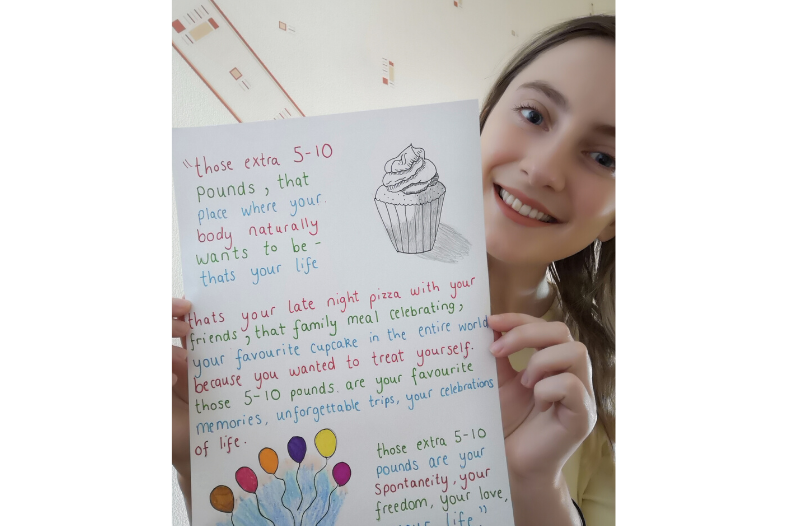 "those extra 5-10
pounds, that
place where your
body naturally
wants to be -
thats your life
thats your late night pizza with your
friends, that family meal celebrating,
your favourite cupcake in the entire world
because you wanted to treat yourself.
those 5-10 pounds. are your favourite
memories, unforgettable trips, your celebrations
of life.
those extra 5-10
pounds are your
spontaneity, your
freedom, your love,
your life"